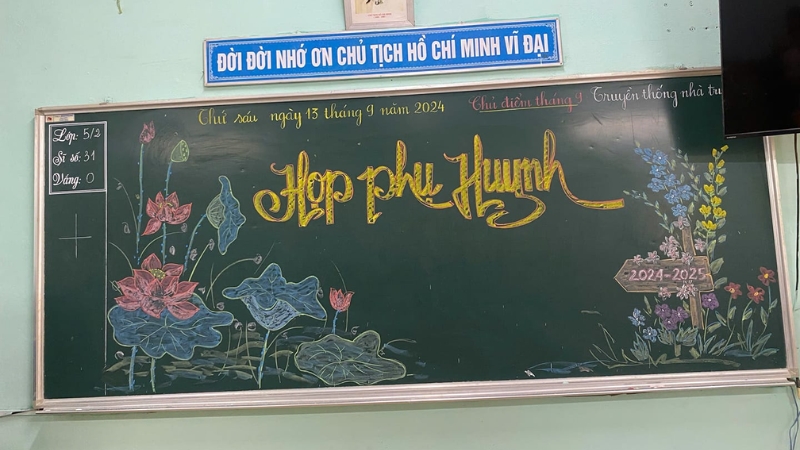 ĐỜI ĐỜI NHỚ ƠN CHỦ TỊCH HỒ CHÍ MINH VĨ ĐẠI
Thứ sáu ngày 13 tháng 9 năm 2024
Chủ điểm tháng 9 Truyền thống nhà
Lớp: 5/2
Sĩ số: 31
Vắng: 0
Họp phụ Huynh
2024-2025